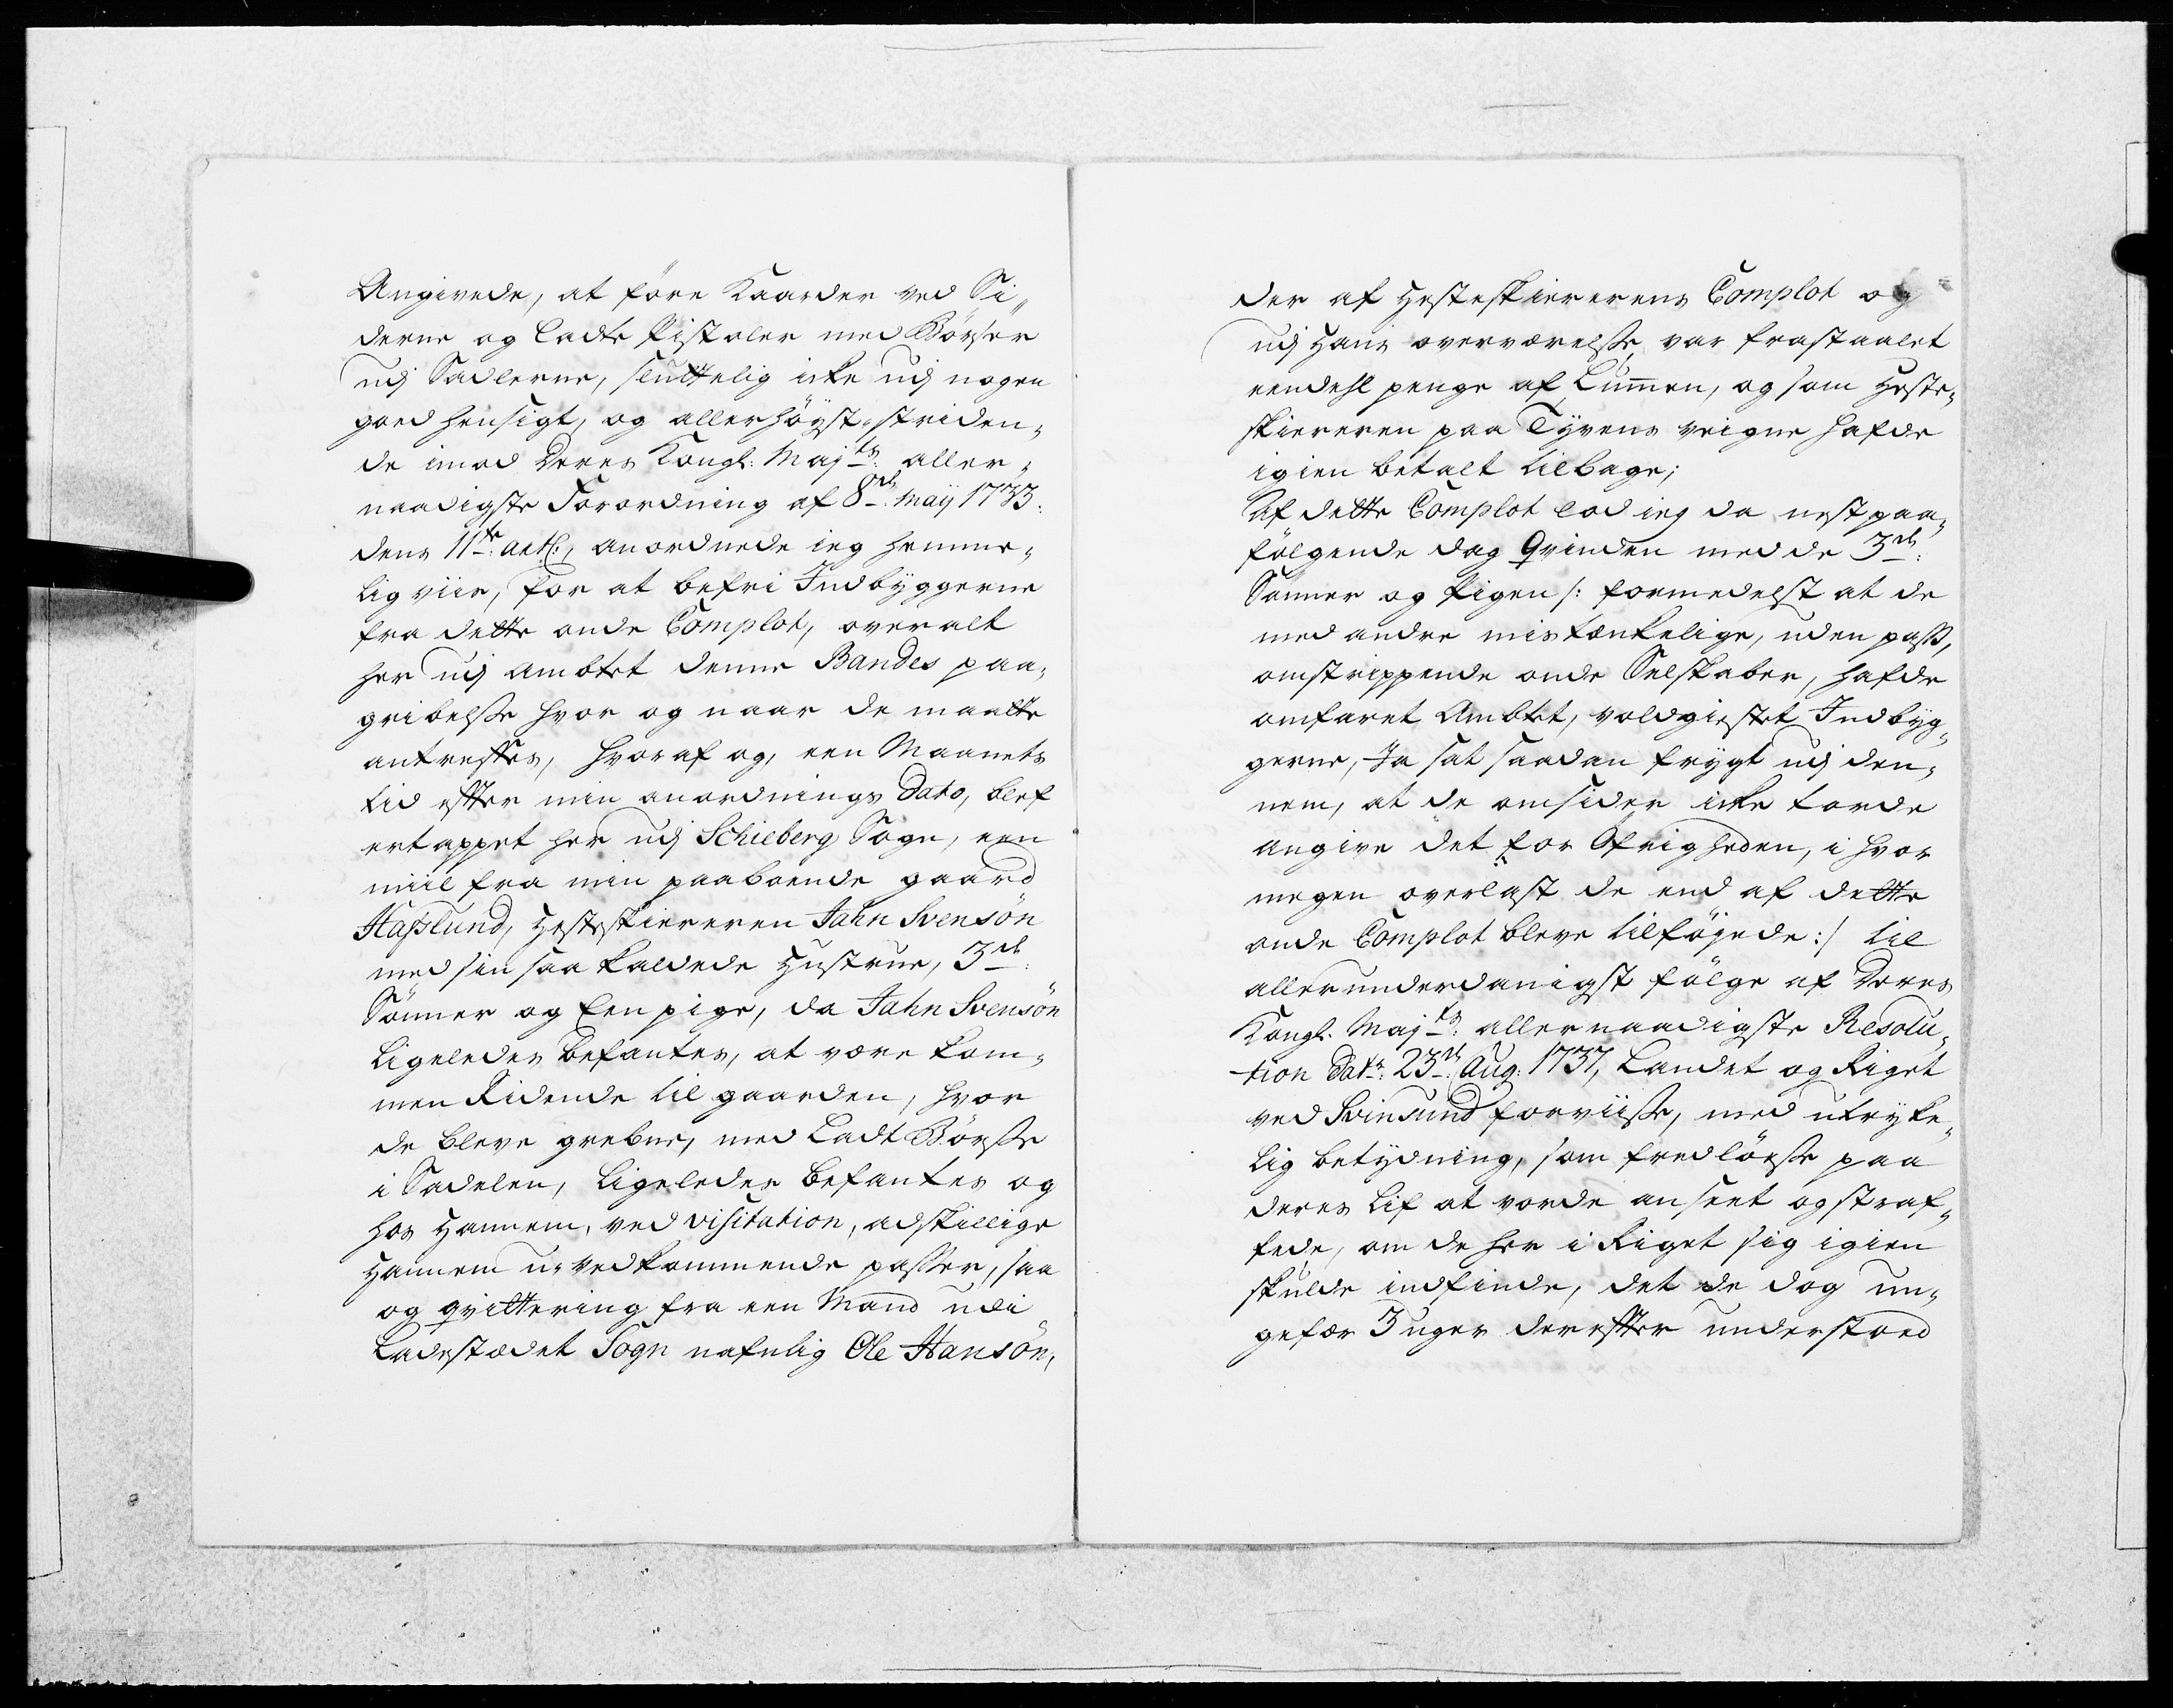 Angivede, at före Kaarder ved Si„
derne og ladte Pistoler med Börser
udj Sadlerne, sluttelig icke udj nogen
goed hensigt, og allerhöyst-striden„
de imod Deres Kongl: Majts: aller„
naadigste Forordning af 8de May 1733.
dens 11te: artl:, anordnede ieg hemme„
lig viis, for at befri Indbyggerne
fra dette onde Complot, overalt
her udj Ambtet denne Bandes paa„
gribelsse hvor og naar de maatte
antreffes, hvoraf og, een Maanets
tid efter min anordnings Dato, blef
ertappet her udj Schieberg Sogn, een
miil fra min paaboende gaard
Hasslund, Hesteskiereren Jahn Svensön
med sin saa kaldede Hustrue, 3de:
Sönner og Een pige, da Jahn Svensön
Ligeledes befantes, at være kom„
men Ridende til gaarden, hvor
de bleve grebne, med Ladt Börsse
i Sadelen, Ligeledes befantes og
hos Hannem, ved visitation, adskillige
Hannem u-vedkommende passer, saa
og qvittering fra een Mand udi
Ladestædet Sogn nafnlig Ole Hansön,
der af Hesteskiererens Complot og
udj Hans overværelsse var frastaalet
eendehl penge af Lummen, og som Heste„
skiereren paa Tyvens veigne hafde
igien betalt tilbage;
Af dette Complot lod ieg da nestpaa„
fölgende dag Qvinden med de 3de:
Sönner og Pigen /: formedelst at de
med andre mistænkelige, uden pass,
omstrippende onde Selskaber, hafde
omfaret Ambtet, voldgiestet Indbyg„
gerne, Ja sat saadan frygt udj den„
nem, at de omsider icke torde
angive det for Öfrigheden, i hvor
megen overlast de end af dette
onde Complot bleve tilföjede :/ til
allerunderdanigst fölge af Deres
Kongl. Majts: allernaadigste Resolu„
tion Datr: 23de Aug: 1737, Landet og Riget
ved Svinsund forviisse, med utrycke„
lig betydning, som fredlösse paa
deres Lif at vorde anseet og straf„
fede, om de her i Riget sig igien
skulde indfinde, det de dog un„
gefær 3 uger derefter understoed